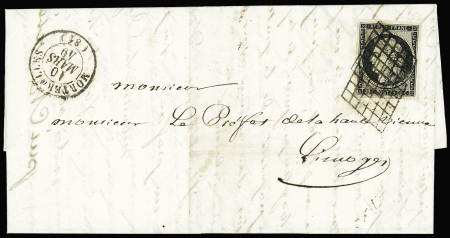 MORTEROLLES
10
MARS
49
(81)
FRANC
monsieur
monsieur Le Préfet de la haute Vienne
Limoges